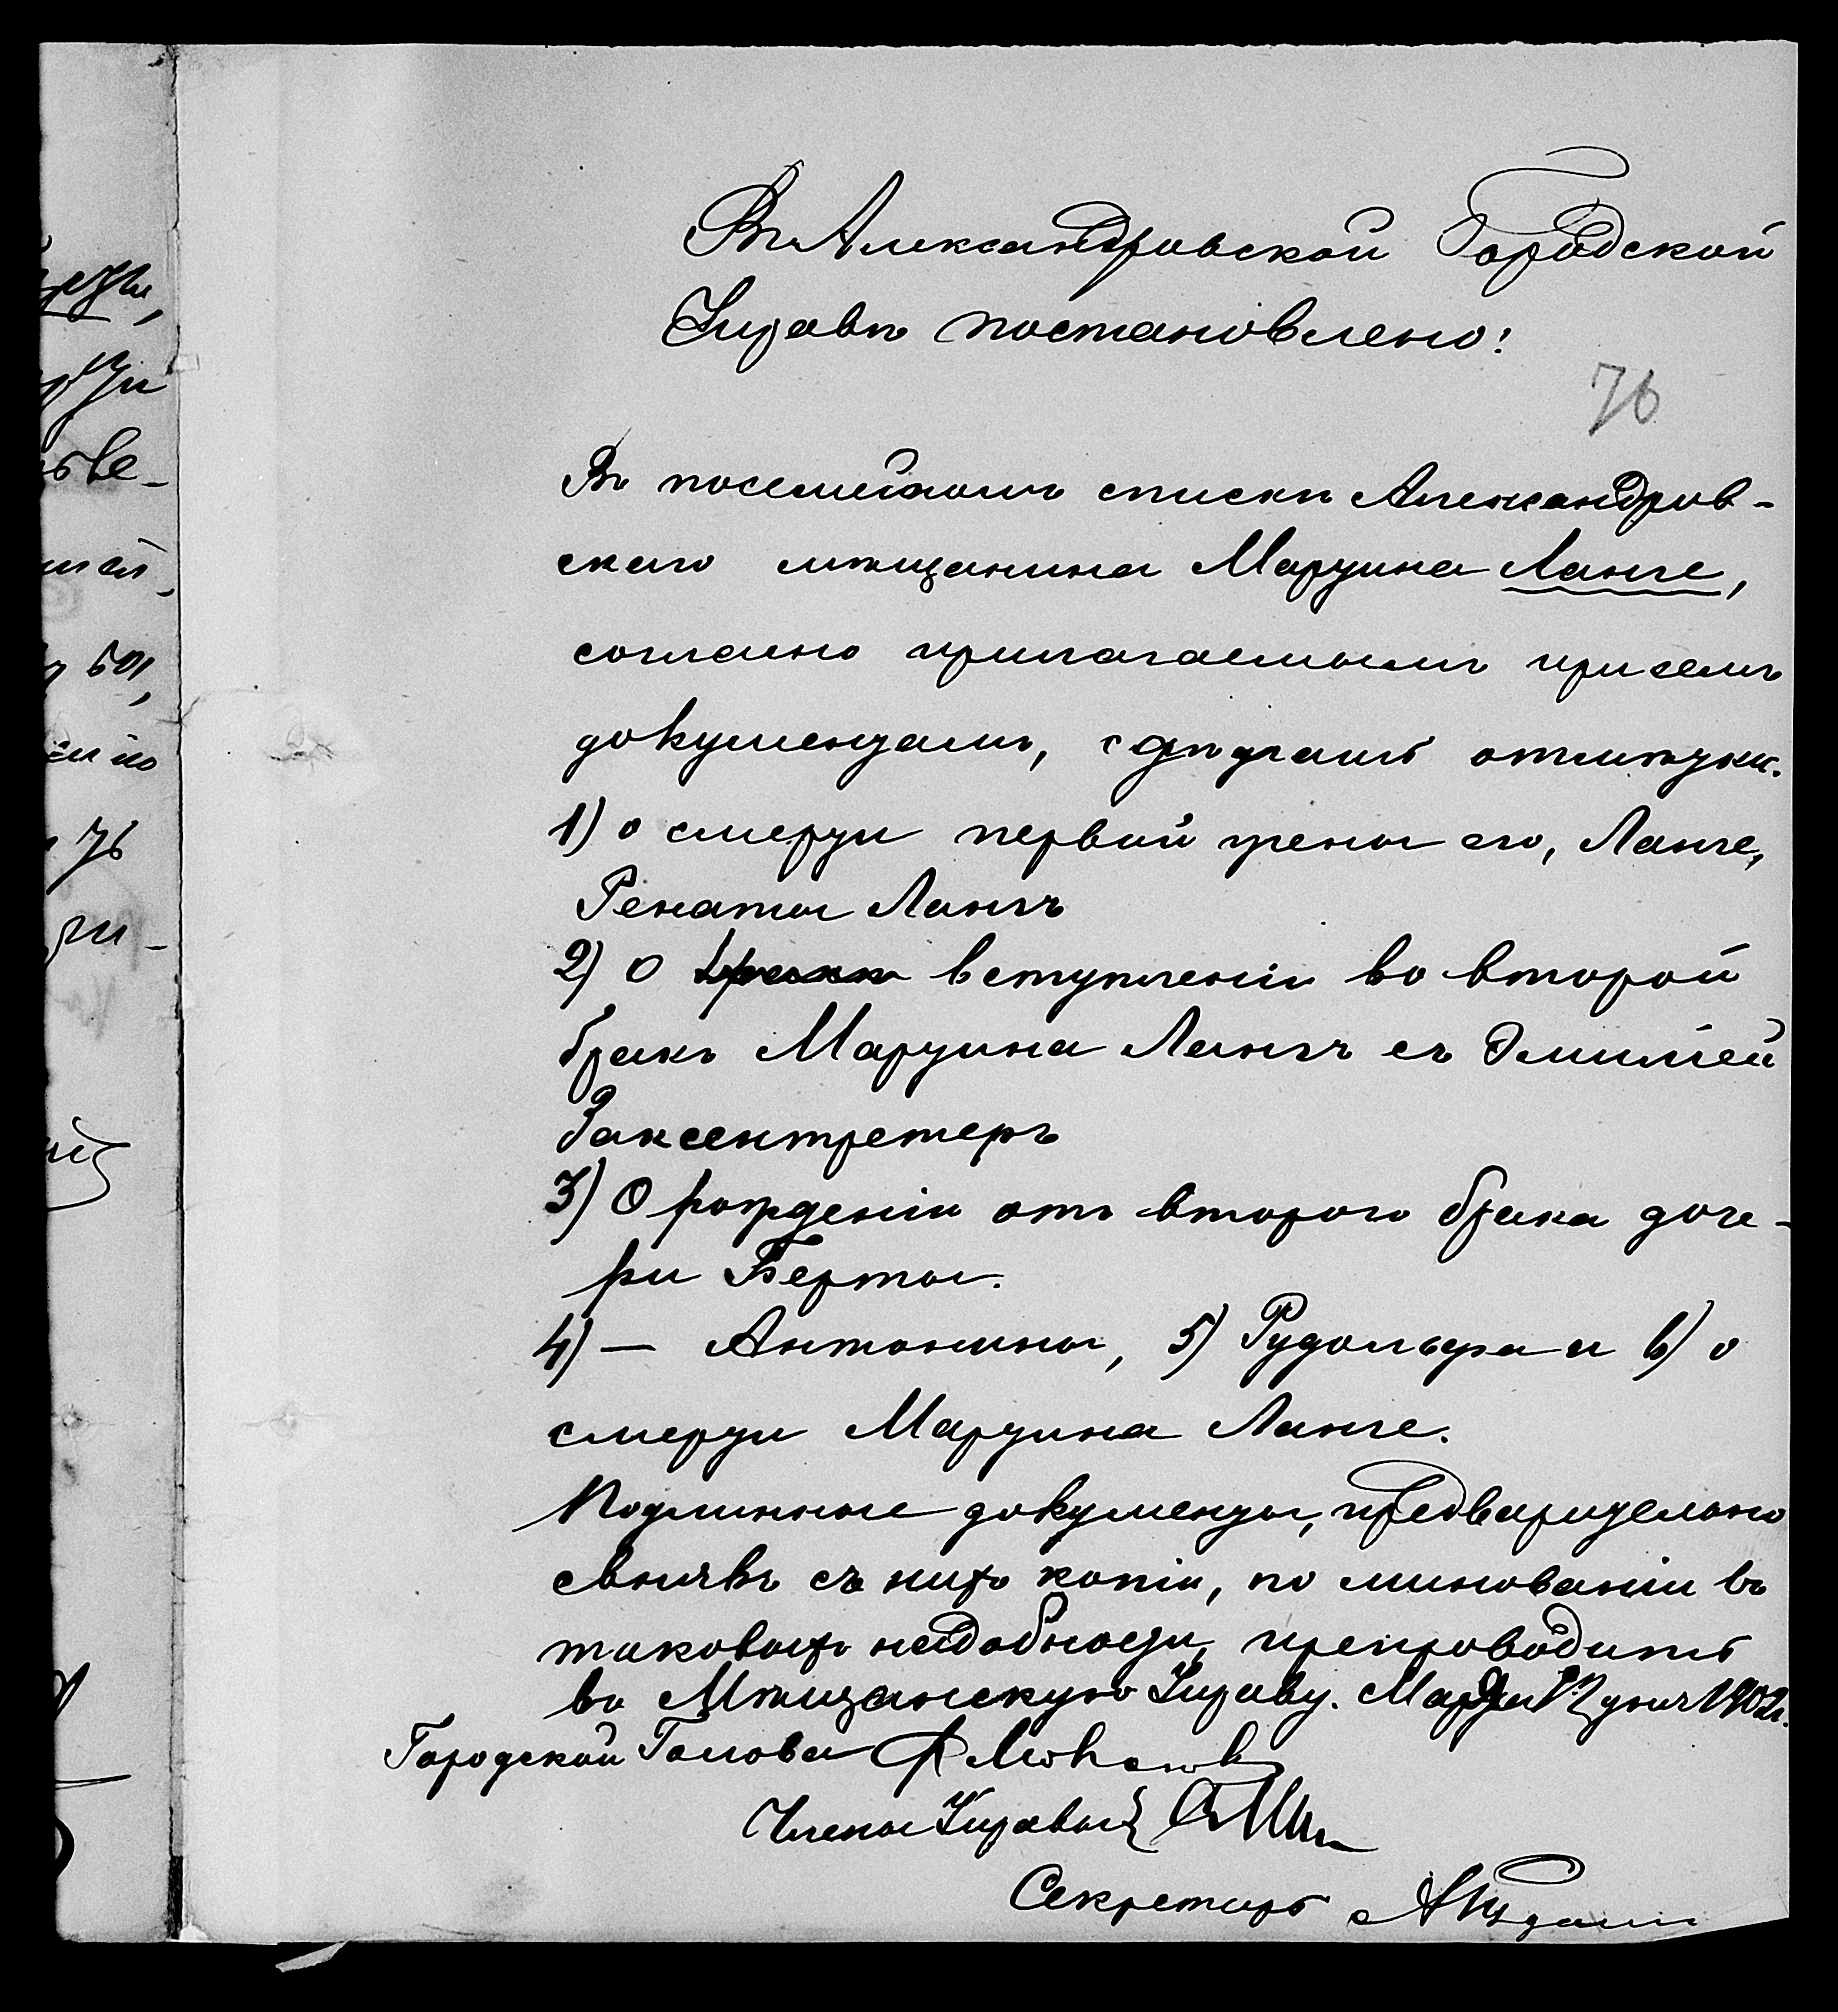 Въ Александровской Городской
Управѣ постановлено:
76
Въ посемейномъ спискѣ Александров-
скаго мѣщанина Мартина Ланге,
согласно прилагаемымъ при семъ
документамъ, сдѣлать отмѣтки.
1) о смерти первой жены его, Ланге,
Ренаты Лангъ
2) О вступленіи во второй
бракъ Мартина Лангъ съ Эмиліей
Заксентретеръ
3) О рожденіи отъ второго брака доче-
ри Берты.
4) — Антонины, 5) Рудольфа и 6) о
смерти Мартина Ланге.
Подлинные документы, предварительно
свѣривъ съ нихъ копіи, по минованіи въ
таковыхъ надобности, препроводить
въ Мѣщанскую Управу. Марта 12 дня 1902 г.
Городской Голова
Члены Управы
Секретарь
ѣй
76